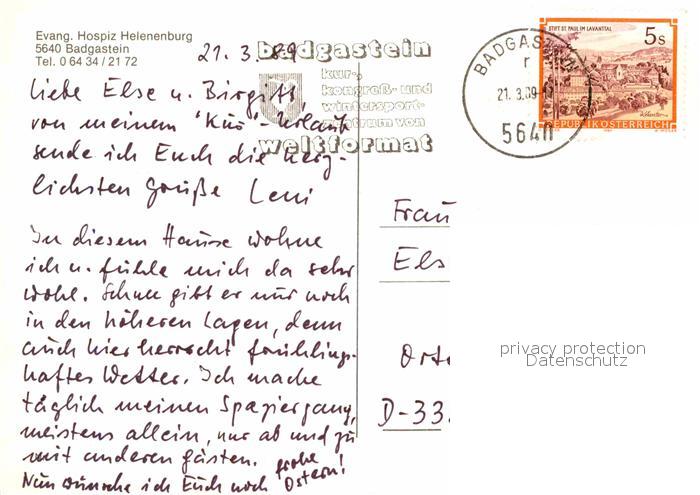 Evang. Hospiz Helenenburg
5640 Badgastein
Tel. 0 64 34 / 21 72
21. 3. 89
badgastein
kur-,
kongreß- und
wintersport-
zentrum von
weltformat
BADGAST
21. 3. 89
5640
STIFT ST. PAUL IM LAVANTTAL
5 S
REPUBLIK ÖSTERREICH
Liebe Else u. Birgitt!
von meinem "Kur"-Urlaub
sende ich Euch die herz-
lichsten Grüße Leni
In diesem Hause wohne
ich u. fühle mich da sehr
wohl. Schnee gibt er nur noch
in den höheren Lagen, denn
auch hier herrscht frühlings-
haftes Wetter. Ich mache
täglich meinen Spaziergang,
meistens allein, nur ab und zu
mit anderen Gästen.
Nun wünsche ich Euch noch frohe
Ostern!
Frau
Els
Orte
D-33.
privacy protection
Datenschutz